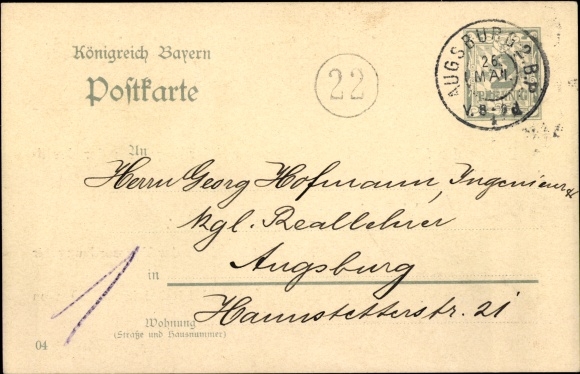 Königreich Bayern
Postkarte
22
AUGSBURG 2. B.P.
26.
MAI.
V. 8-9
2
PFENNIG
An
Herrn Georg Hofmann, Ingenieur &
kgl. Reallehrer
in Augsburg
Wohnung Haunstetterstr. 21
(Straße und Hausnummer)
04
1